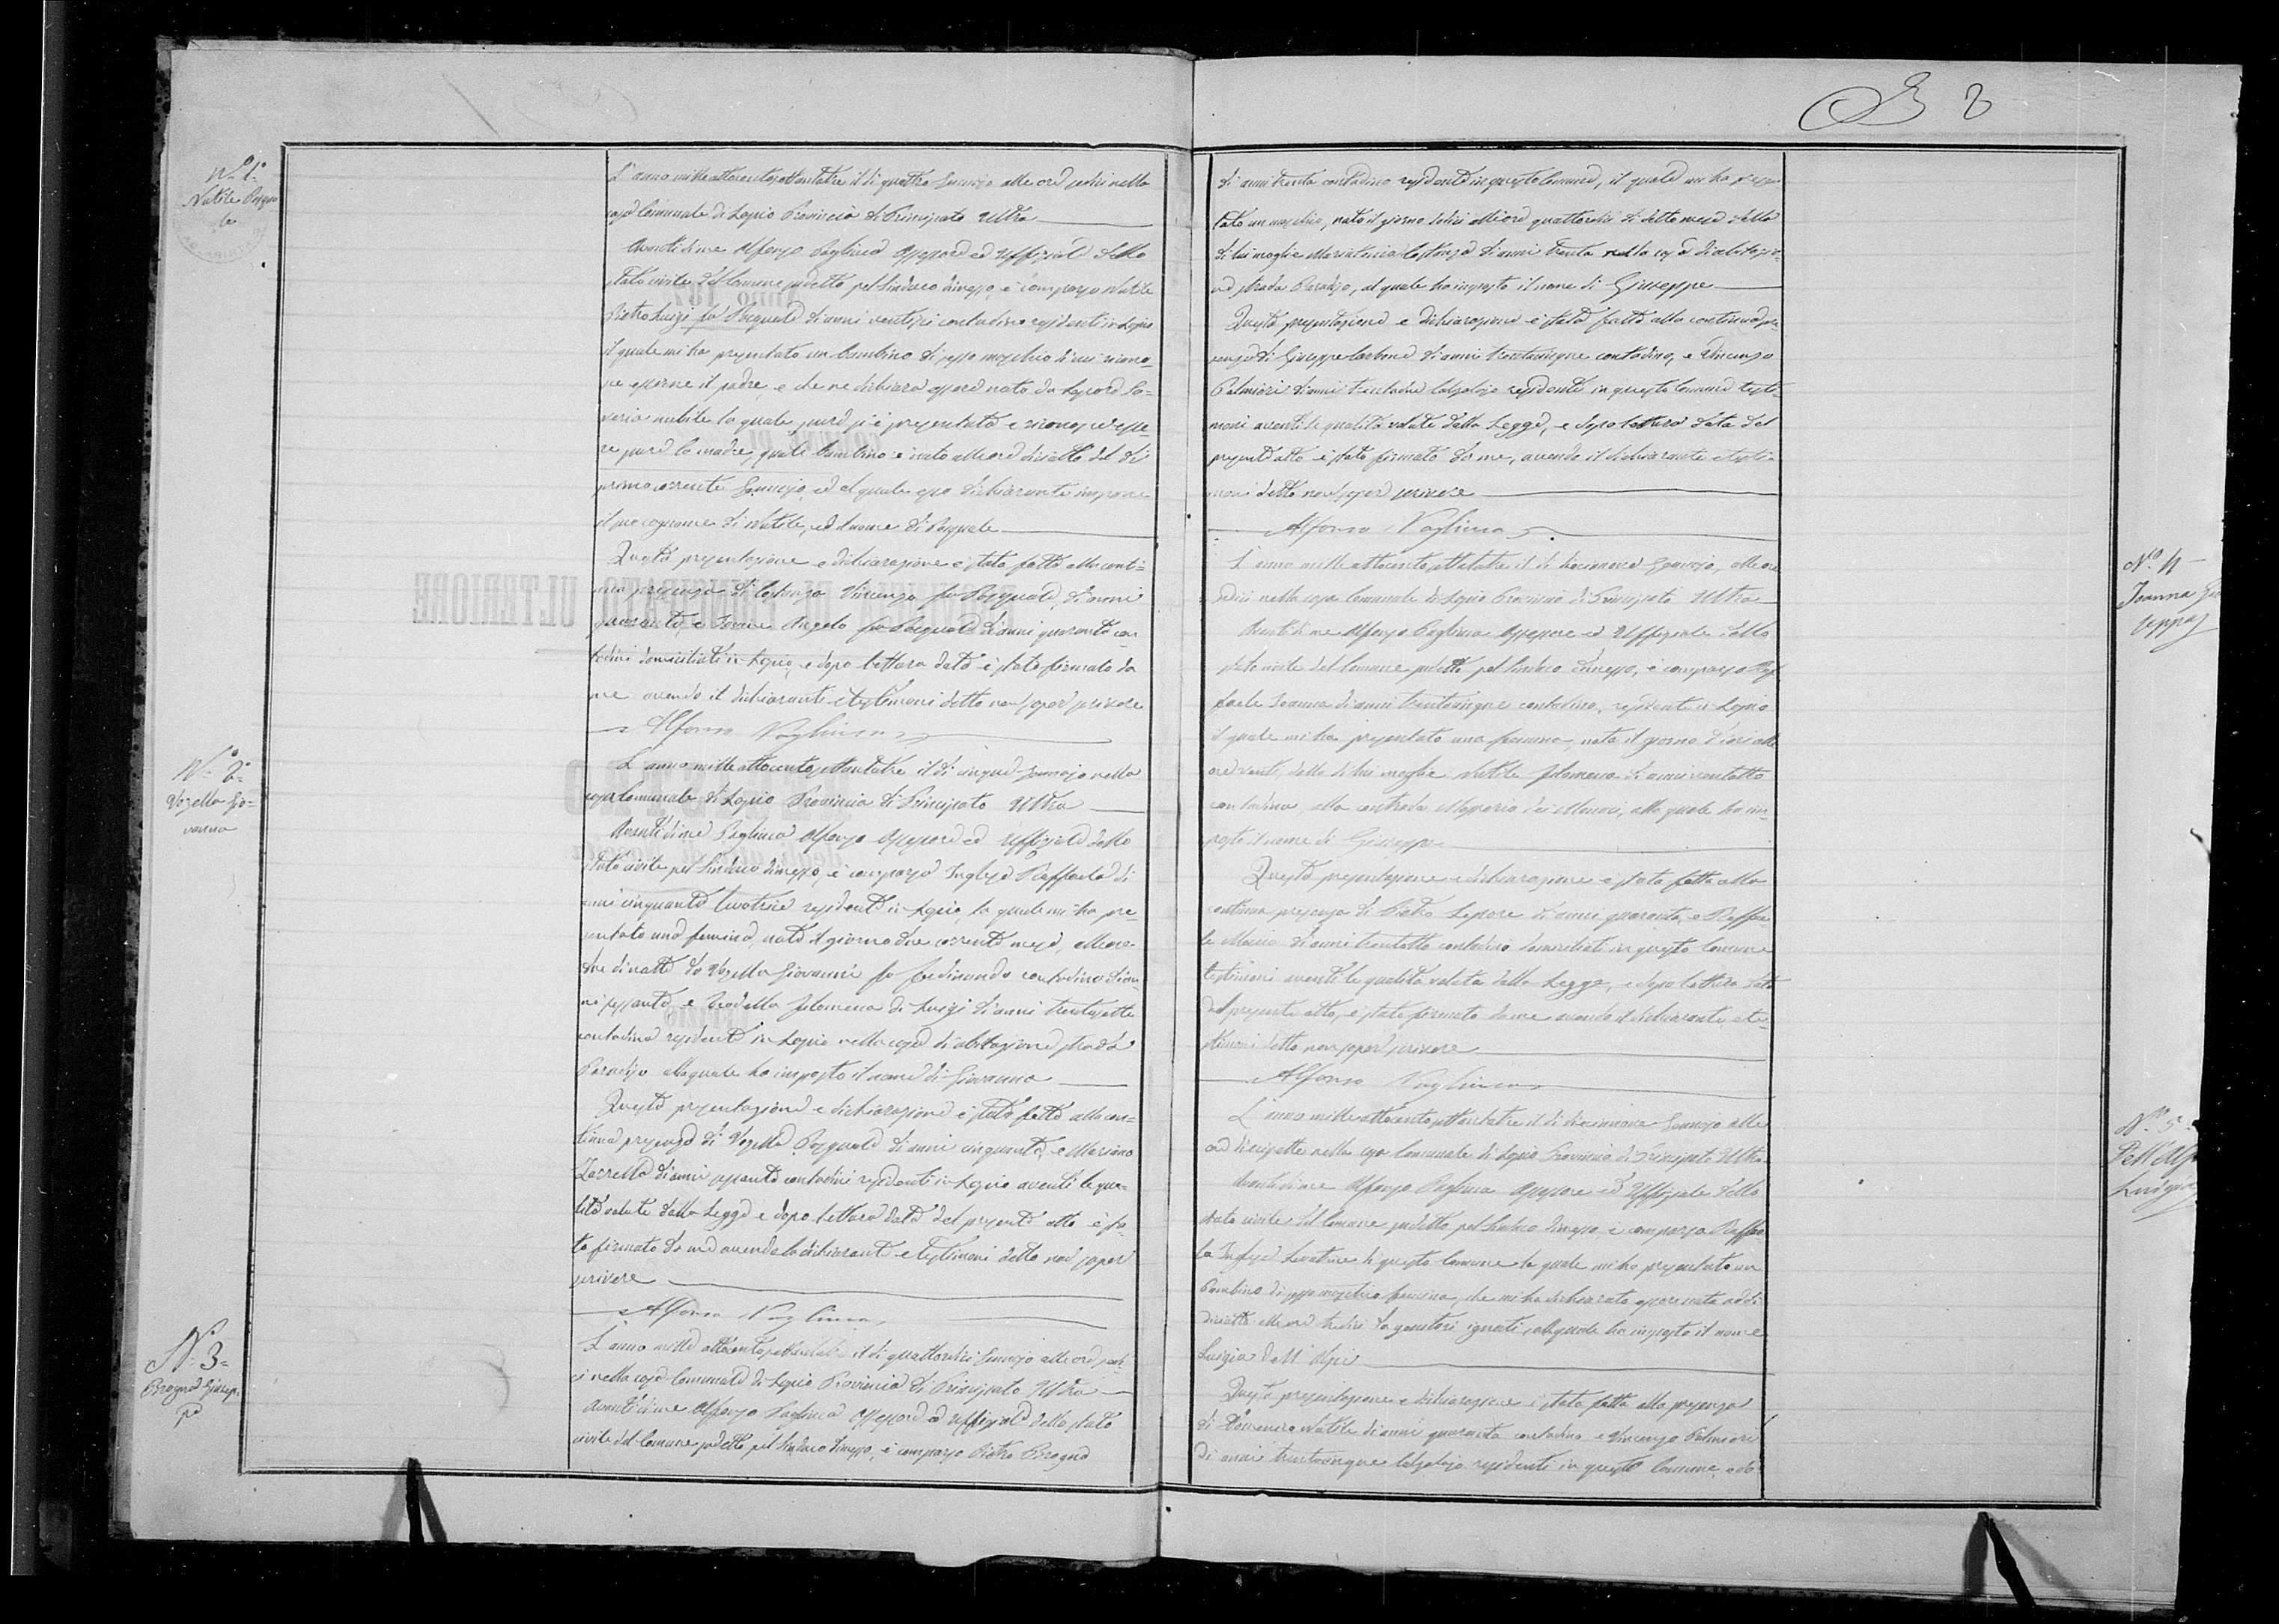 N.° 1.°
Natile Pasqua
le
L'anno mille ottocento settantatre il dì quattro Gennajo alle ore sedici nella
casa Comunale di Lapio Provincia di Principato Ultra
Avanti di me Alfonso Pagliuca Assessore ed Uffiziale dello
stato civile del Comune suddetto pel Sindaco dimesso, è comparso Natile
Pietro Luigi fu Pasquale di anni ventisei contadino residente in Lapio
il quale mi ha presentato un bambino di sesso maschio di cui ricono-
sce esserne il padre, e che ne dichiara essere nato da Lepore Sa-
veria nubile la quale pure si è presentata e riconosce esse-
re pure la madre, quale bambino è nato alle ore diciotto del dì
primo corrente Gennajo, ed al quale esso dichiarante impone
il suo cognome di Natile, ed il nome di Pasquale
Questa presentazione e dichiarazione è stata fatta alla conti-
nua presenza di Costanza Vincenzo fu Pasquale, di anni
quaranta, e Angelo fu Pasquale di anni quaranta con
tadini domiciliati in Lapio, e dopo lettura data è stato firmato da
me avendo il dichiarante e testimoni detto non saper scrivere
Alfonso Pagliuca
N.° 2.°
Vozella Gio-
vanna
L'anno mille ottocento settantatre il dì cinque Gennajo nella
casa Comunale di Lapio Provincia di Principato Ultra
Avanti di me Pagliuca Alfonso Assessore ed Uffiziale dello
stato civile pel Sindaco dimesso, è comparsa Inglese Raffaela di
anni cinquanta levatrice residente in Lapio, la quale mi ha pre-
sentato una femina, nata il giorno due corrente mese, alle ore
da Vozella Giovanni fu Ferdinando contadino di an-
ni sessanta, e Filomena di Luigi di anni trentasette
contadina residenti in Lapio nella casa di abitazione strada
Paradiso alla quale ha imposto il nome di Giovanna
Questa presentazione e dichiarazione è stata fatta alla con-
tinua presenza di Vozella Pasquale di anni cinquanta, e Mariano
Zarrella di anni sessanta contadini residenti in Lapio aventi le qua-
lità volute dalla Legge e dopo lettura data del presente atto è sta-
to firmato da me avendo la dichiarante e testimoni detto non saper
scrivere
Alfonso Pagliuca
N.° 3.°
Brogna Giusep-
pe
L'anno mille ottocento settantatre il dì quattordici Gennajo alle ore sedi-
ci nella casa Comunale di Lapio Provincia di Principato Ultra
Avanti di me Alfonso Pagliuca Assessore ed Uffiziale dello stato
civile del Comune suddetto pel Sindaco dimesso, è comparso Pietro Brogna
2
di anni trenta contadino residente in questo Comune, il quale mi ha presen
tato un maschio, nato il giorno dodici alle ore quattordici di detto mese dalla
di lui moglie Costanza di anni trenta nella casa di abitazio-
ne strada Paradiso, al quale ha imposto il nome di Giuseppe
Questa presentazione e dichiarazione è stata fatta alla continua pre
senza di Giuseppe Carbone di anni trentacinque contadino, e Vincenzo
Palmieri di anni trentadue calzolajo residenti in questo Comune testi-
moni aventi le qualità volute dalla Legge, e dopo lettura data del
presente atto è stato firmato da me, avendo il dichiarante e testi-
moni detto non saper scrivere
Alfonso Pagliuca
N.° 4
Joanna Giu
seppa
L'anno mille ottocento settantatre il dì diecinove Gennajo, alle ore
sedici nella casa Comunale di Lapio Provincia di Principato Ultra
Avanti di me Alfonso Pagliuca Assessore ed Uffiziale dello
stato civile del Comune suddetto pel Sindaco dimesso, è comparso Raf
faele Joanna di anni trentacinque contadino, residente in Lapio
il quale mi ha presentato una femina, nata il giorno alle
ore venti, dalla di lui moglie Natile Filomena di anni ventotto
contadina, alla contrada Masseria dei Monaci, alla quale ha im-
posto il nome di Giuseppa
Questa presentazione e dichiarazione è stata fatta alla
continua presenza di Pietro Lepore di anni quaranta, e Raffae
le di anni trentotto contadini domiciliati in questo Comune
testimoni aventi le qualità volute dalla Legge, e dopo lettura data
del presente atto, è stato firmato da me avendo il dichiarante e te-
stimoni detto non saper scrivere
Alfonso Pagliuca
N.° 5
Dell'Alpi
Luigia
L'anno mille ottocento settantatre il dì diecinnove Gennajo alle
ore diecisette nella casa Comunale di Lapio Provincia di Principato Ultra
Avanti di me Alfonso Pagliuca Assessore ed Uffiziale dello
stato civile del Comune suddetto pel Sindaco dimesso è comparsa Raffae
la Inglese Levatrice di questo Comune la quale mi ha presentato un
bambino di sesso femina, che mi ha dichiarato essere nata addì
diciotto alle ore tredici da genitori ignoti, alla quale ha imposto il nome
Luigia Dell'Alpi
Questa presentazione e dichiarazione è stata fatta alla presenza
di Natile di anni quaranta contadino e Vincenzo Palmieri
di anni trentacinque calzolajo residenti in questo Comune, e do